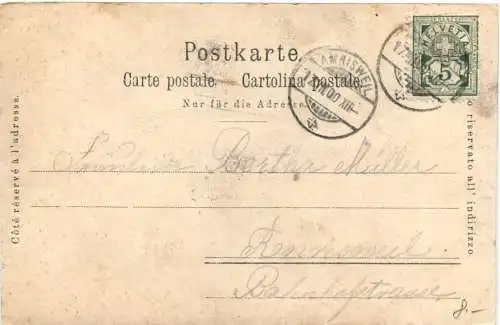 Postkarte.
Carte postale. Cartolina postale.
Nur für die Adresse.
Côté réservé à l'adresse.
lato riservato all' indirizzo
HELVETIA
5
AMRISWEIL
XII
17
Fräulein Bertha Müller
Amrisweil
Bahnhofstrasse
8.-